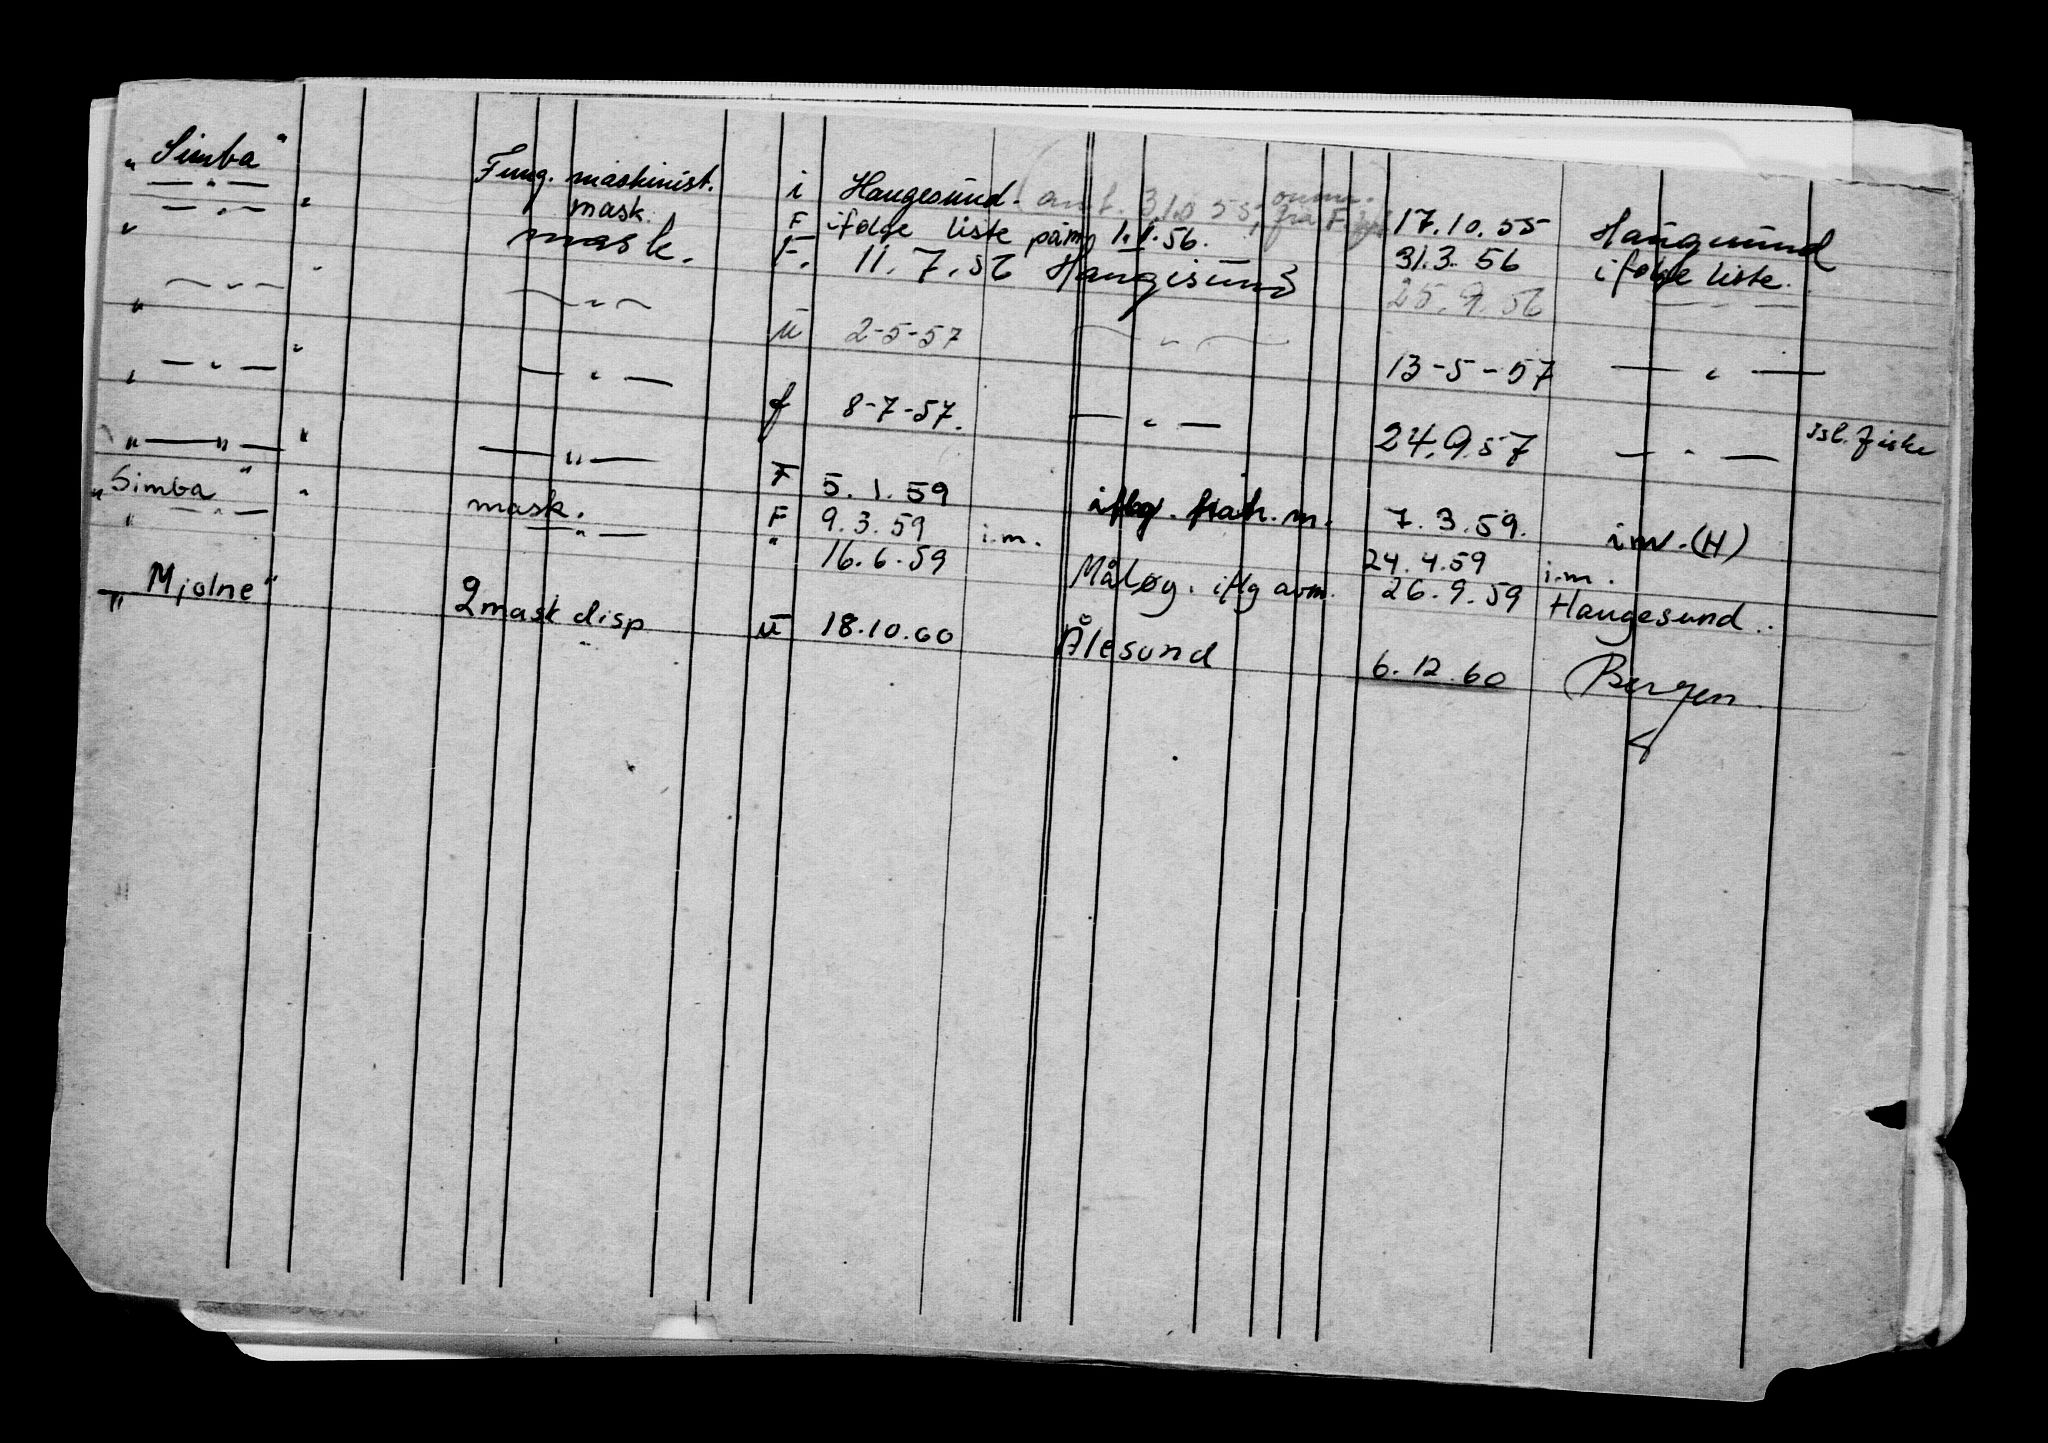 „Simba" Fung. maskinist. i Haugesund. 17.10.55 Haugesund
— " — " mask. F ifølge liste påm 1.1.56. 31.3.56 ifølge liste.
" — " — mask. F. 11.7.56 Haugesund 25.9.56 — " —
— " — " — " — u 2-5-57 — " — 13-5-57 — " —
" — " — " — " — f 8-7-57. — " — 24.9.57 — " — Isl. fiske
" — " — " — " — F 5.1.59 iflg. m. 7.3.59. inv.(H)
„Simba" " mask. F 9.3.59 i.m. 24.4.59 i.m.
" — " — — " — " 16.6.59 Måløy. iflg avm. 26.9.59 Haugesund.
„Mjolne" 2 mask disp u 18.10.60 Ålesund 6.12.60 Bergen